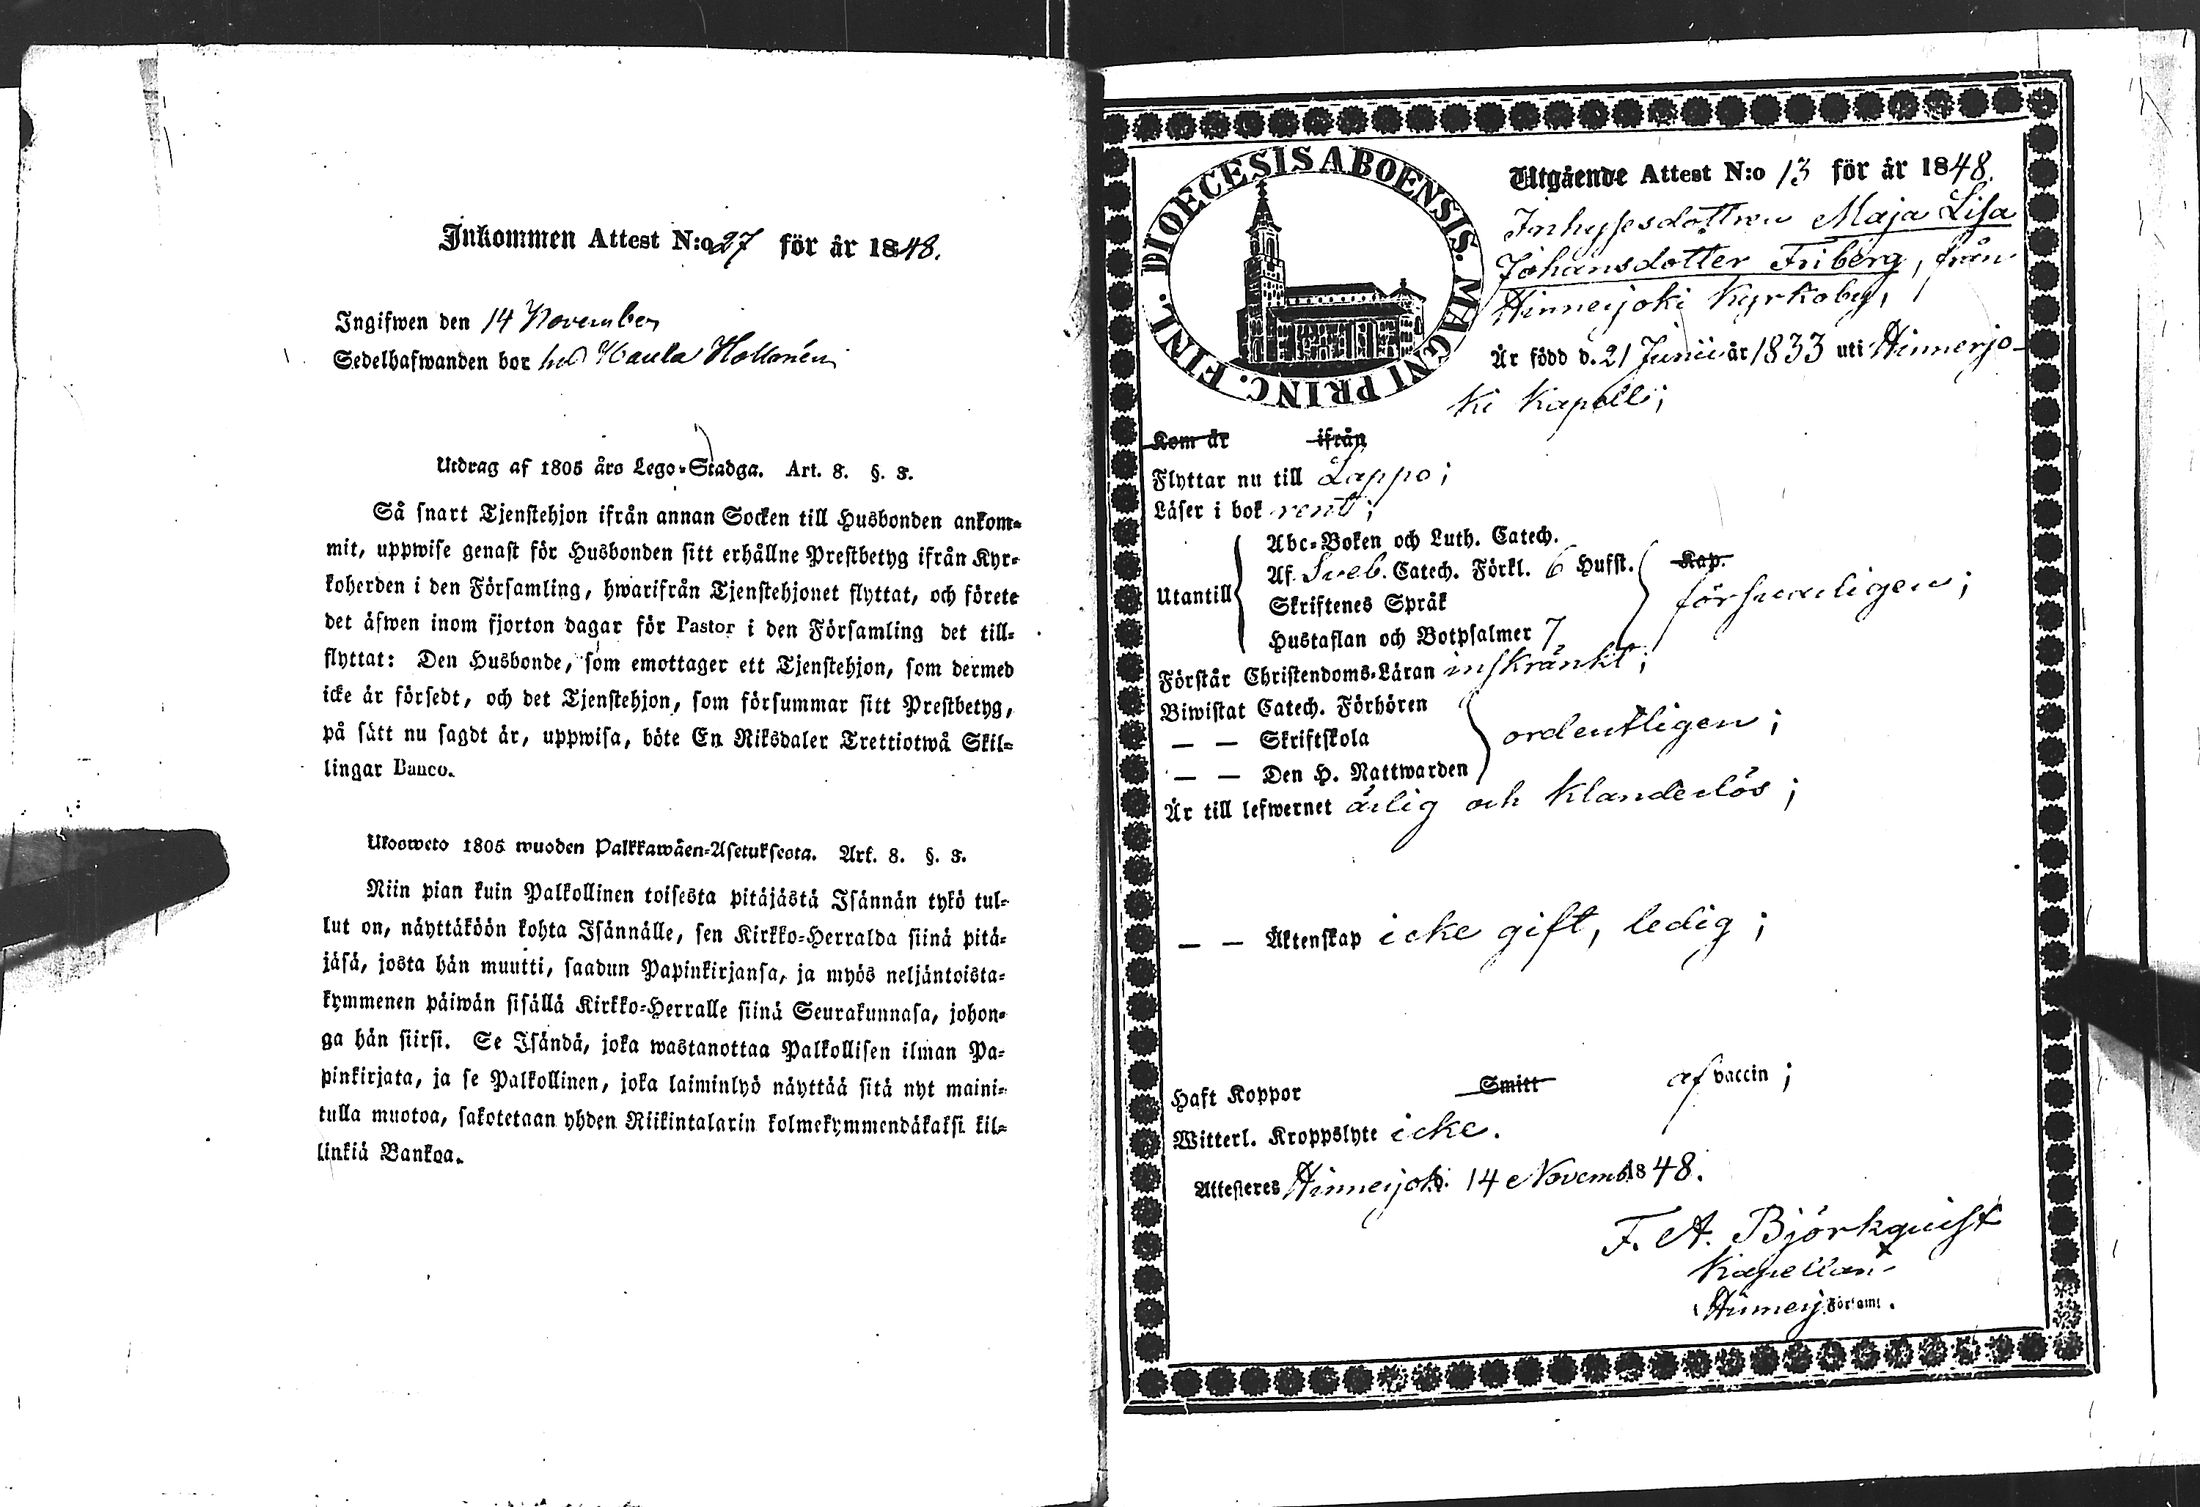 Inkommen Attest N:o 27 för år 1848.
Ingifwen den 14 November
Sedelhafwanden bor hos
Utdrag af 1805 års Lego-Stadga. Art. 8. §. 3.
Så snart Tjenstehjon ifrån annan Socken till Husbonden ankom-
mit, uppwise genast för Husbonden sitt erhållne Prestbetyg ifrån Kyr-
koherden i den Församling, hwarifrån Tjenstehjonet flyttat, och förete
det äfwen inom fjorton dagar för Pastor i den Församling det till-
flyttat: Den Husbonde, som emottager ett Tjenstehjon, som dermed
icke är försedt, och det Tjenstehjon, som försummar sitt Prestbetyg,
på sätt nu sagdt är, uppwisa, böte En Riksdaler Trettiotwå Skil-
lingar Banco.
Ulosweto 1805 wuoden Palkkawäen-Asetuksesta. Art. 8. §. 3.
Niin pian kuin Palkollinen toisesta pitäjästä Isännän tykö tul-
lut on, näyttäköön kohta Isännälle, sen Kirkko-Herralda siinä pitä-
jäsä, josta hän muutti, saadun Papinkirjansa, ja myös neljäntoista-
kymmenen päiwän sisällä Kirkko-Herralle siinä Seurakunnasa, johon-
ga hän siirsi. Se Isändä, joka wastanottaa Palkollisen ilman Pa-
pinkirjata, ja se Palkollinen, joka laiminlyö näyttää sitä nyt maini-
tulla muotoa, sakotetaan yhden Riikintalarin kolmekymmendäkaksi kil-
linkiä Bankoa.
DIOECESIS ABOENSIS. MAGNI PRINC. FINL.
Utgående Attest N:o 13 för år 1848.
Inhysesdottren Maja Lisa
Johansdotter Friberg, från
Hinnerjoki Kyrkoby,
Är född d. 21 Junii år 1833 uti Hinnerjo-
ki Kapell;
Kom år ifrån
Flyttar nu till Lappo;
Läser i bok rent;
Utantill
Abc-Boken och Luth. Catech.
Af Sveb. Catech. Förkl. 6 Hufst. Kap.
Skriftenes Språk
Hustaflan och Botpsalmer 7
försvarligen;
Förstår Christendoms-Läran inskränkt;
Biwistat Catech. Förhören
— — Skriftskola
— — Den H. Nattwarden
ordentligen;
Är till lefwernet ärlig och klanderlös;
— — Äktenskap icke gift, ledig;
Haft Koppor Smitt af vaccin;
Witterl. Kroppslyte icke.
Attesteres Hinnerjoki d. 14 Novemb. 1848.
F. A. Björkqvist
Kapellan
Hinnerj. Församl.